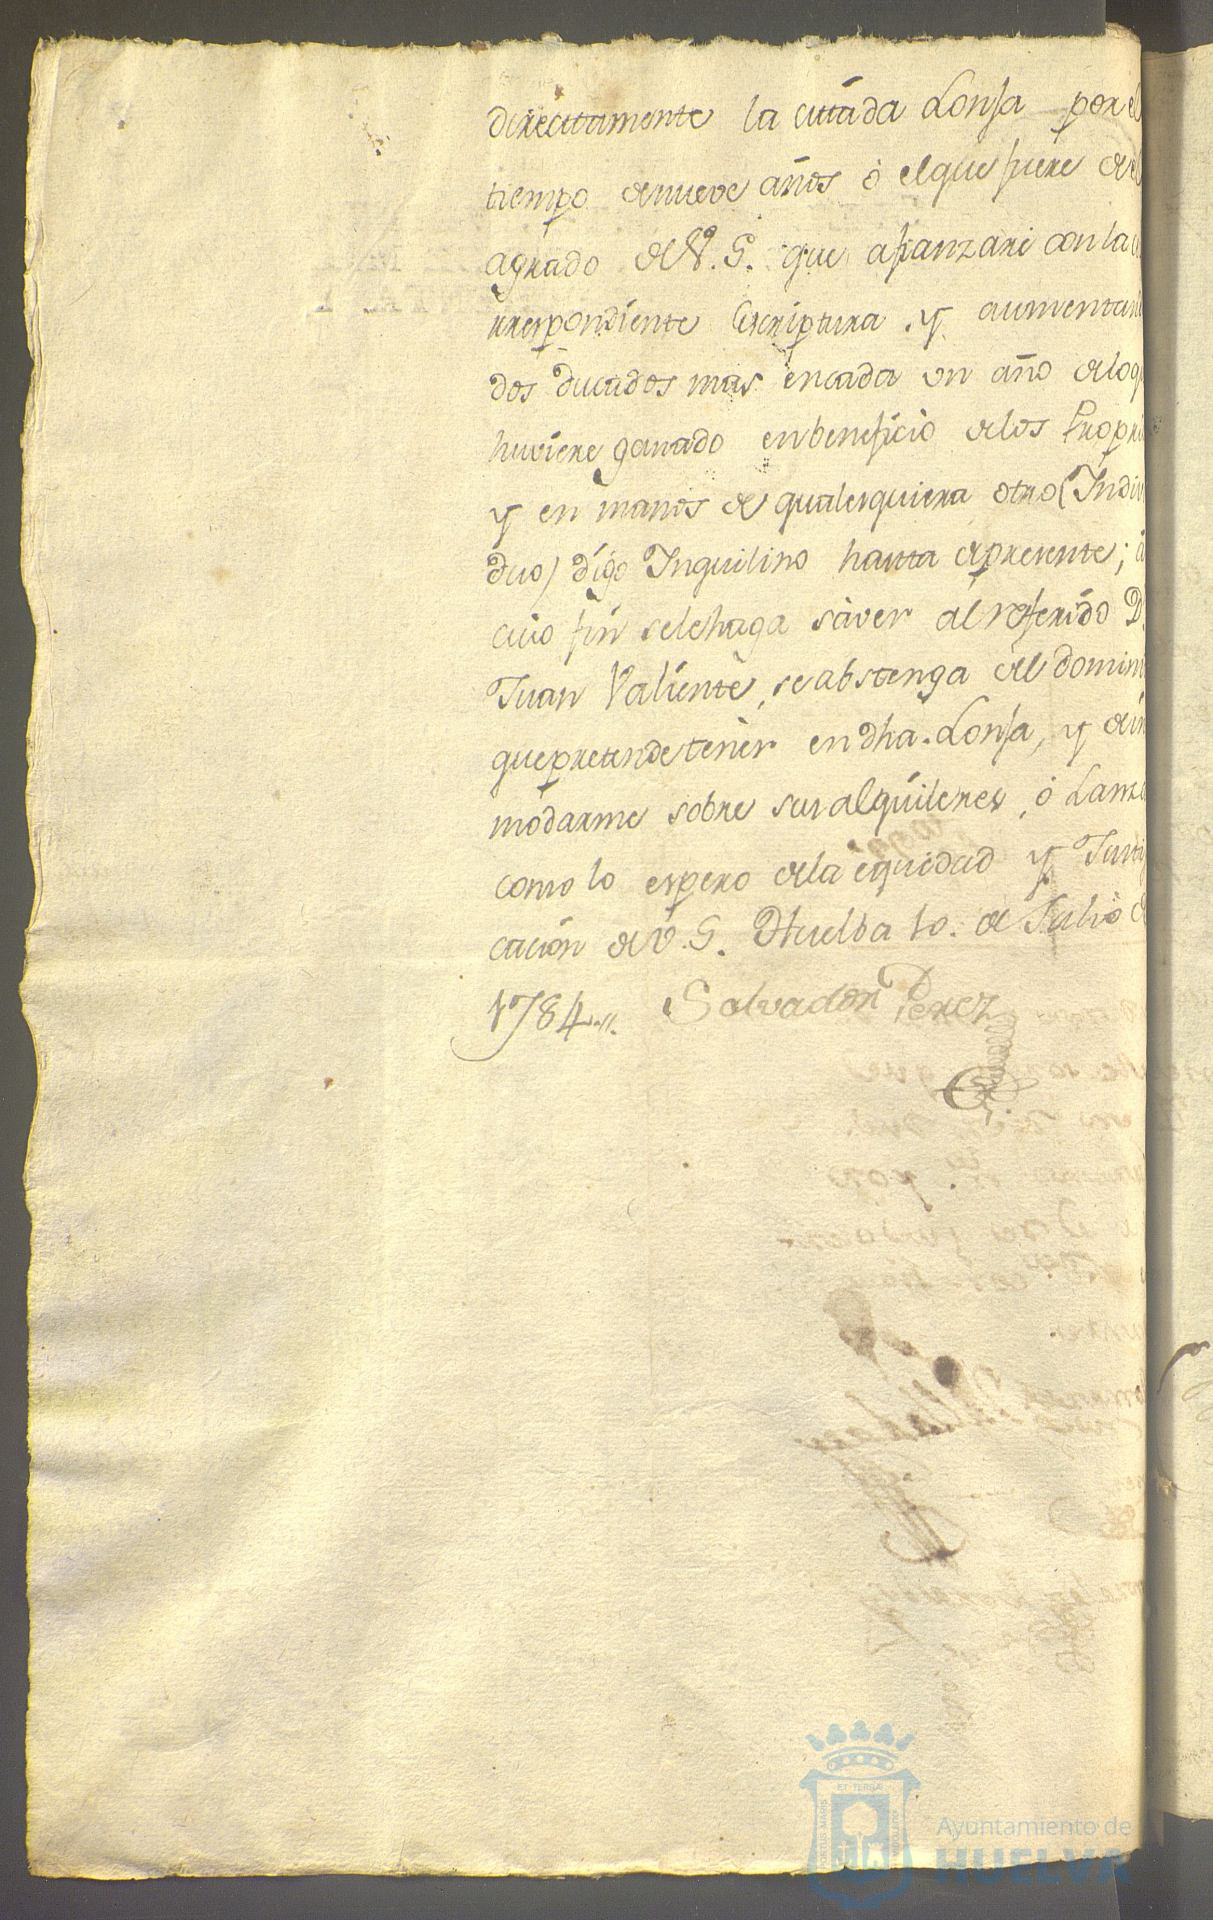 direcctamente la citáda Lonja por el
tiempo de nueve años ó el que fuere del
agrado de V. S. que afianzaré con la co
rrespondiente Escriptura y aumentan
dos ducados mas en cada un año de lo q
huviere ganado en beneficio de los Propri
y en manos de qualesquiera otro (Indivi
duo) dígo Inquilino hasta el presente; á
cuio fin se le haga sàver al referido D.
Juan Valiente, se abstenga del domini
que pretende tenèr en dha. Lonja, y
modarme sobre sus alquileres, ó Lanza
como lo espero de la equidad y Justi
cación de V. S. Huelba 10. de Julio d
1784
Salvador Perez
Ayuntamiento de
HUELVA